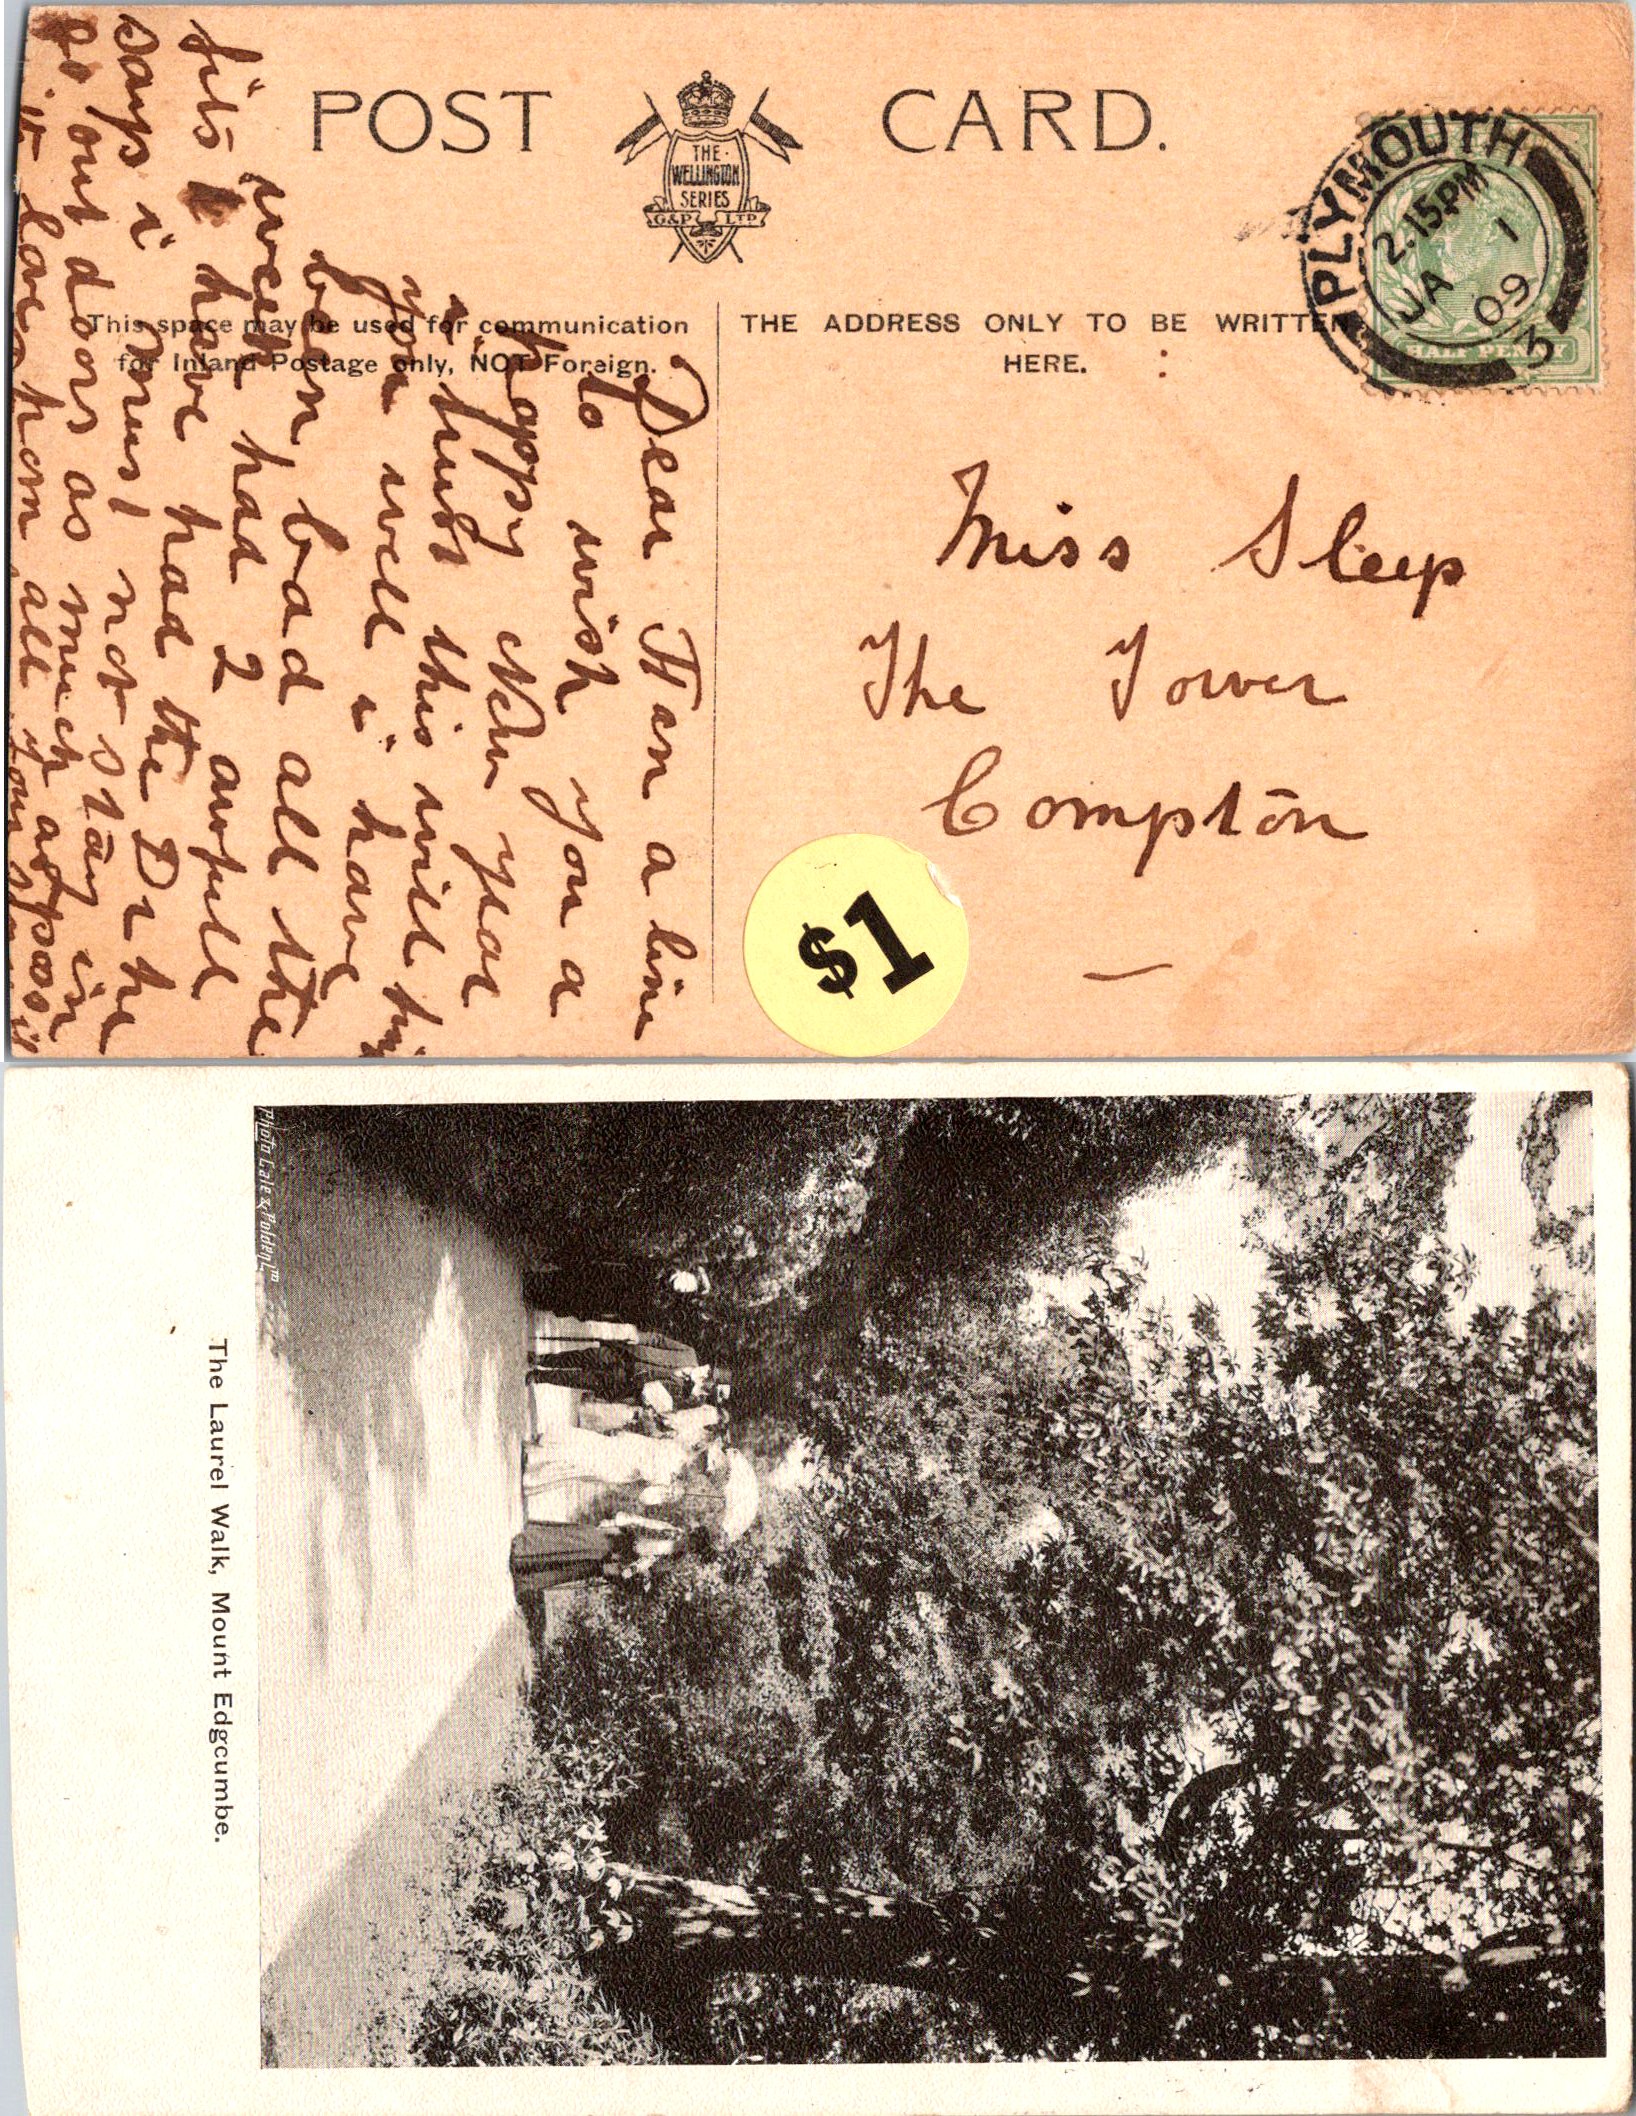 POST CARD.
THE
WELLINGTON
SERIES
G&P LTD
This space may be used for communication
for Inland Postage only, NOT Foreign.
THE ADDRESS ONLY TO BE WRITTEN
HERE.
PLYMOUTH
2.15PM
JA 1
09
3
HALF PENNY
Miss Sleep
The Tower
Compton
$1
Dear Han a line
to wish you a
happy New year
i hus this will
you well i have
been bad all the
week had 2 awfull
fits i have had the Dr he
says i must not stay in
go out doors as much as poss
it love from all
The Laurel Walk, Mount Edgcumbe.
Photo Cale & Polden Ltd